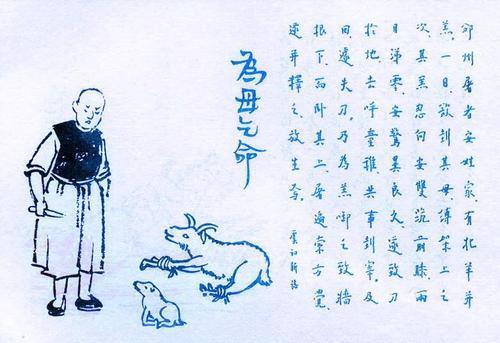 為母乞命
邠州屠者安姓家有牝羊并
羔一日欲刲其母縛架上之
次其羔忽向安雙跪前膝兩
目涕零安驚異良久遂致刀
於地去呼童稚共事刲宰及
回遽失刀乃為羔啣之致牆
根下而卧其上屠遍索方覺
遂并釋之放生焉
虞初新志